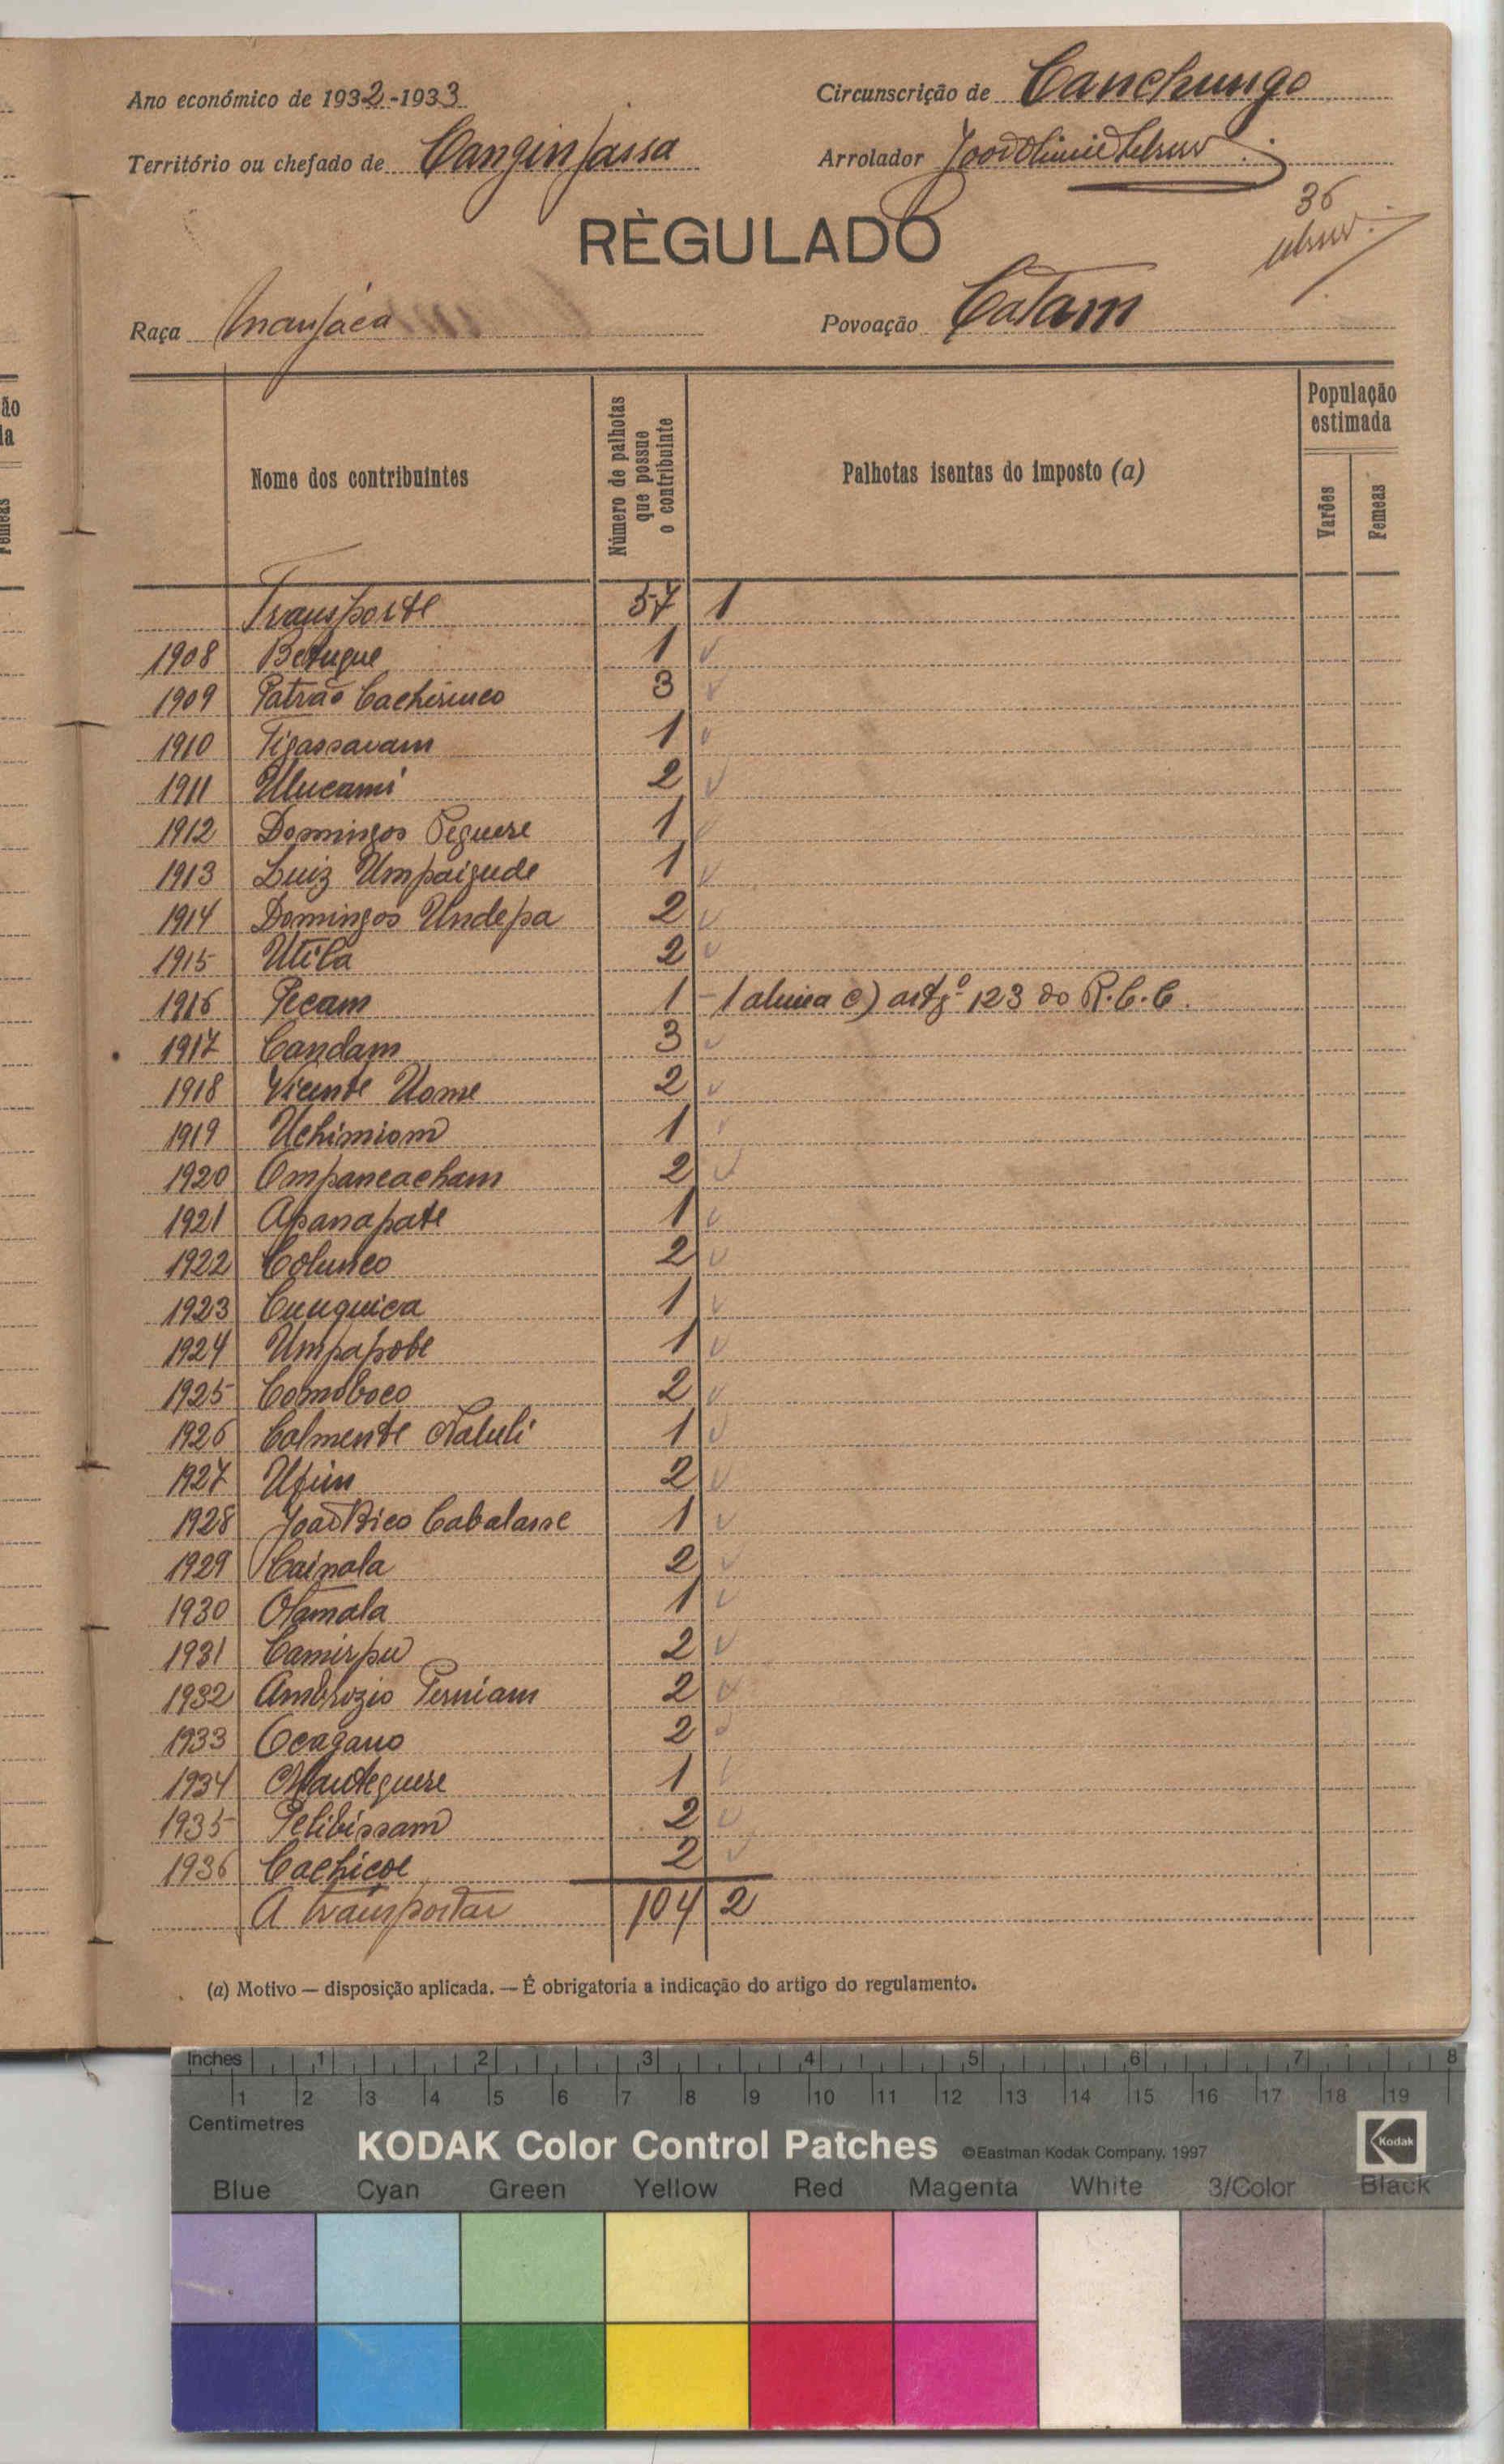 Ano económico de 1932-1933
Circunscrição de Canchungo
Território ou chefado de Canginjassa
Arrolador
36
RÈGULADO
Raça Manjáca
Povoação Catam
Nome dos contribuintes
Número de palhotas que possue o contribuinte
Palhotas isentas do imposto (a)
População estimada
Varões
Femeas
Transporte 57 1
1908 Betugue 1
1909 Patrão Cachirinco 3
1910 Tigassavam 1
1911 Ulucami 2
1912 Domingos Peguere 1
1913 Luiz Umpaigude 1
1914 Domingos Undepa 2
1915 Utila 2
1916 Pecam 1 - 1 alinea c) artgº 123 do R.C.C.
1917 Candam 3
1918 Vicente Uome 2
1919 Uchimiom 1
1920 Ompancacham 2
1921 Apanapate 1
1922 Colunco 2
1923 Cunquica 1
1924 Umpapobe 1
1925 Comoboco 2
1926 Colmente Naluli 1
1927 Ufim 2
1928 João Bico Cabalasse 1
1929 Cainala 2
1930 Otamala 1
1931 Camirpu 2
1932 Ambrozio Perniam 2
1933 Ocagano 2
1934 Manteguere 1
1935 Pelibissam 2
1936 Cachicoe 2
A transportar 104 2
(a) Motivo — disposição aplicada. — É obrigatoria a indicação do artigo do regulamento.
Inches 1 2 3 4 5 6 7 8
1 2 3 4 5 6 7 8 9 10 11 12 13 14 15 16 17 18 19
Centimetres
KODAK Color Control Patches ©Eastman Kodak Company, 1997 Kodak
Blue Cyan Green Yellow Red Magenta White 3/Color Black